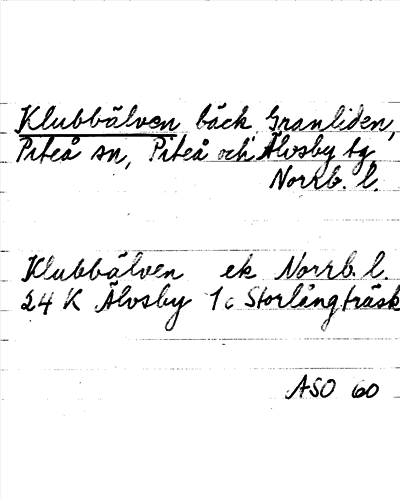 Klubbälven bäck, Granliden,
Piteå sn, Piteå och Älvsby tg
Norrb. l.
Klubbälven ek Norrb. l.
24 K Älvsby 1c Storlångträsk
ASO 60